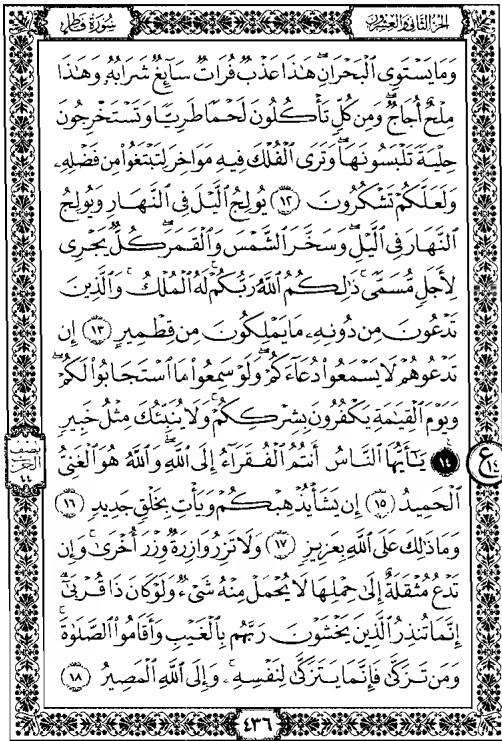 الجزء الثاني والعشرون
سورة فاطر
وَمَا يَسْتَوِي ٱلْبَحْرَانِ هَٰذَا عَذْبٌ فُرَاتٌ سَآئِغٌ شَرَابُهُۥ وَهَٰذَا
مِلْحٌ أُجَاجٌ ۖ وَمِن كُلٍّ تَأْكُلُونَ لَحْمًا طَرِيًّا وَتَسْتَخْرِجُونَ
حِلْيَةً تَلْبَسُونَهَا ۖ وَتَرَى ٱلْفُلْكَ فِيهِ مَوَاخِرَ لِتَبْتَغُوا۟ مِن فَضْلِهِۦ
وَلَعَلَّكُمْ تَشْكُرُونَ ١٢ يُولِجُ ٱلَّيْلَ فِى ٱلنَّهَارِ وَيُولِجُ
ٱلنَّهَارَ فِى ٱلَّيْلِ وَسَخَّرَ ٱلشَّمْسَ وَٱلْقَمَرَ كُلٌّ يَجْرِى
لِأَجَلٍ مُّسَمًّى ۚ ذَٰلِكُمُ ٱللَّهُ رَبُّكُمْ لَهُ ٱلْمُلْكُ ۚ وَٱلَّذِينَ
تَدْعُونَ مِن دُونِهِۦ مَا يَمْلِكُونَ مِن قِطْمِيرٍ ١٣ إِن
تَدْعُوهُمْ لَا يَسْمَعُوا۟ دُعَآءَكُمْ وَلَوْ سَمِعُوا۟ مَا ٱسْتَجَابُوا۟ لَكُمْ ۖ
وَيَوْمَ ٱلْقِيَٰمَةِ يَكْفُرُونَ بِشِرْكِكُمْ ۚ وَلَا يُنَبِّئُكَ مِثْلُ خَبِيرٍ
١٤ يَٰٓأَيُّهَا ٱلنَّاسُ أَنتُمُ ٱلْفُقَرَآءُ إِلَى ٱللَّهِ ۖ وَٱللَّهُ هُوَ ٱلْغَنِىُّ
ٱلْحَمِيدُ ١٥ إِن يَشَأْ يُذْهِبْكُمْ وَيَأْتِ بِخَلْقٍ جَدِيدٍ ١٦
وَمَا ذَٰلِكَ عَلَى ٱللَّهِ بِعَزِيزٍ ١٧ وَلَا تَزِرُ وَازِرَةٌ وِزْرَ أُخْرَىٰ ۚ وَإِن
تَدْعُ مُثْقَلَةٌ إِلَىٰ حِمْلِهَا لَا يُحْمَلْ مِنْهُ شَىْءٌ وَلَوْ كَانَ ذَا قُرْبَىٰٓ ۗ
إِنَّمَا تُنذِرُ ٱلَّذِينَ يَخْشَوْنَ رَبَّهُم بِٱلْغَيْبِ وَأَقَامُوا۟ ٱلصَّلَوٰةَ ۚ
وَمَن تَزَكَّىٰ فَإِنَّمَا يَتَزَكَّىٰ لِنَفْسِهِۦ ۚ وَإِلَى ٱللَّهِ ٱلْمَصِيرُ ١٨
نصف
الحزب
٤٤
ع
٤٣٦